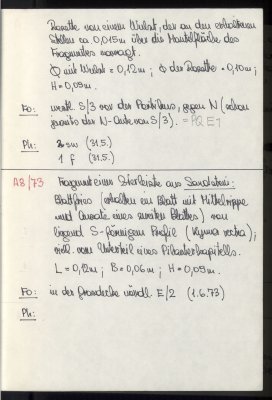 Rosette von einem Wulst, der an den erhaltenen
Stellen ca. 0,015m über die Mantelfläche des
Fragmentes vorragt.
∅ mit Wulst = 0,12m ; ∅ der Rosette = 0,10m ;
H = 0,09m.
Fo: westl. S/3 vor der Portikus, gegen N (schon
jenseits der N-Kante von S/3). = PQ E1
Ph: 2 sw (31.5.)
1 f (31.5.)
A8/73 Fragment einer Zierleiste aus Sandstein:
Blattfries (erhalten ein Blatt mit Mittelrippe
und Ansatz eines zweiten Blattes) von
liegend S-förmigem Profil (Kyma recta);
viell. vom Unterteil eines Pilasterkapitells.
L = 0,12m ; B = 0,06m ; H = 0,09m.
Fo: in der nördl. E/2 (1.6.73)
Ph: